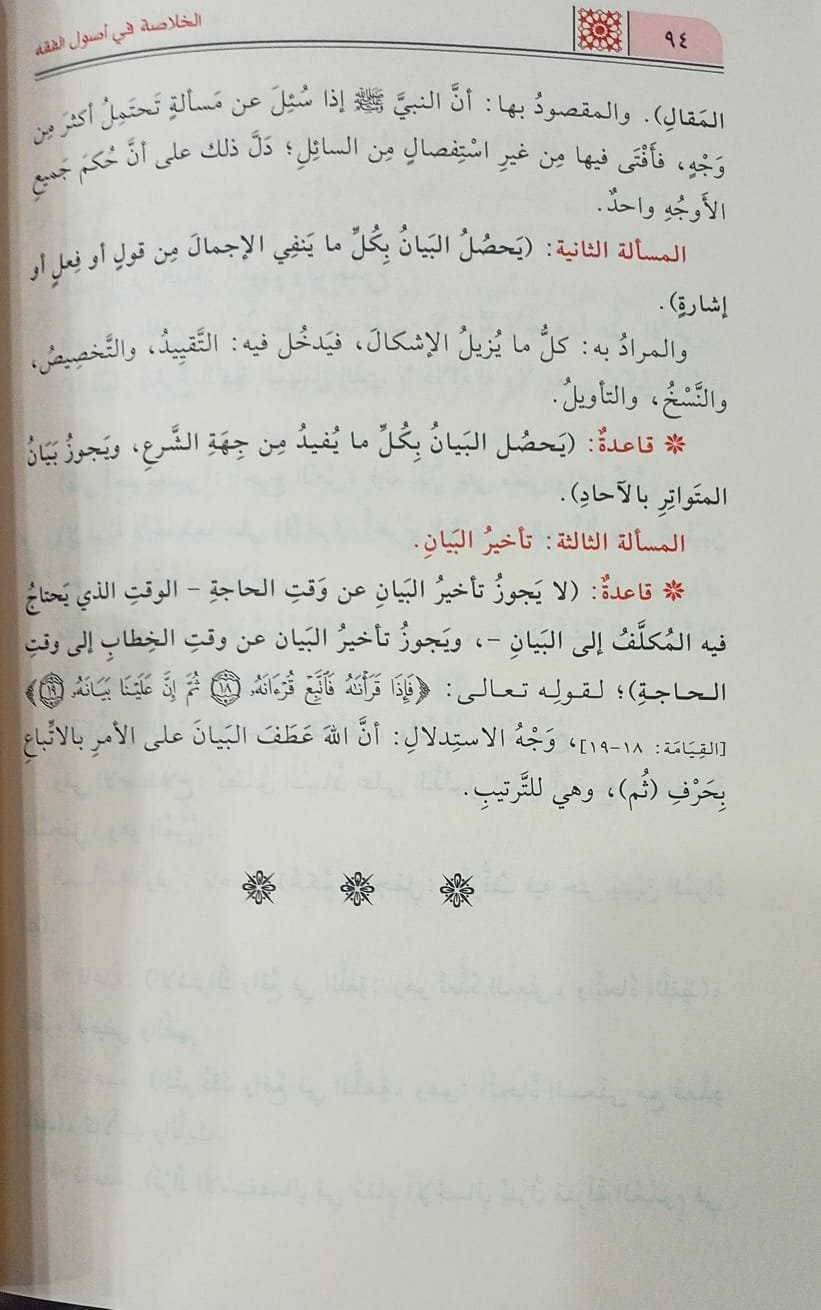 ٩٤
الخلاصة في أصول الفقه
المَقالِ). والمقصودُ بها: أنَّ النبيَّ ﷺ إذا سُئِلَ عن مَسألةٍ تَحتَمِلُ أكثرَ مِن
وَجْهٍ، فأَفْتَى فيها مِن غيرِ اسْتِفصالٍ مِن السائلِ؛ دَلَّ ذلك على أنَّ حُكمَ جَميعِ
الأَوجُهِ واحدٌ.
المسألة الثانية: (يَحصُلُ البَيانُ بِكُلِّ ما يَنفِي الإجمالَ مِن قولٍ أو فِعلٍ أو
إشارةٍ).
والمرادُ به: كلُّ ما يُزيلُ الإشكالَ، فيَدخُل فيه: التَّقيِيدُ، والتَّخصِيصُ،
والنَّسْخُ، والتأويلُ.
❋ قاعدةٌ: (يَحصُل البَيانُ بِكُلِّ ما يُفيدُ مِن جِهَةِ الشَّرعِ، ويَجوزُ بَيَانُ
المتَواتِرِ بالآحادِ).
المسألة الثالثة: تأخيرُ البَيانِ.
❋ قاعدةٌ: (لا يَجوزُ تأخيرُ البَيانِ عن وَقتِ الحاجةِ - الوقتِ الذي يَحتاجُ
فيه المُكلَّفُ إلى البَيانِ -، ويَجوزُ تأخيرُ البَيان عن وقتِ الخِطابِ إلى وقتِ
الحاجةِ)؛ لقولِه تعالى: ﴿فَإِذَا قَرَأْنَٰهُ فَٱتَّبِعْ قُرْءَانَهُۥ ١٨ ثُمَّ إِنَّ عَلَيْنَا بَيَانَهُۥ ١٩﴾
[القِيَامَة: ١٨-١٩]، وَجْهُ الاستِدلالِ: أنَّ اللهَ عَطَفَ البَيانَ على الأمرِ بالاتِّباعِ
بِحَرْفِ (ثُم)، وهي للتَّرتيبِ.